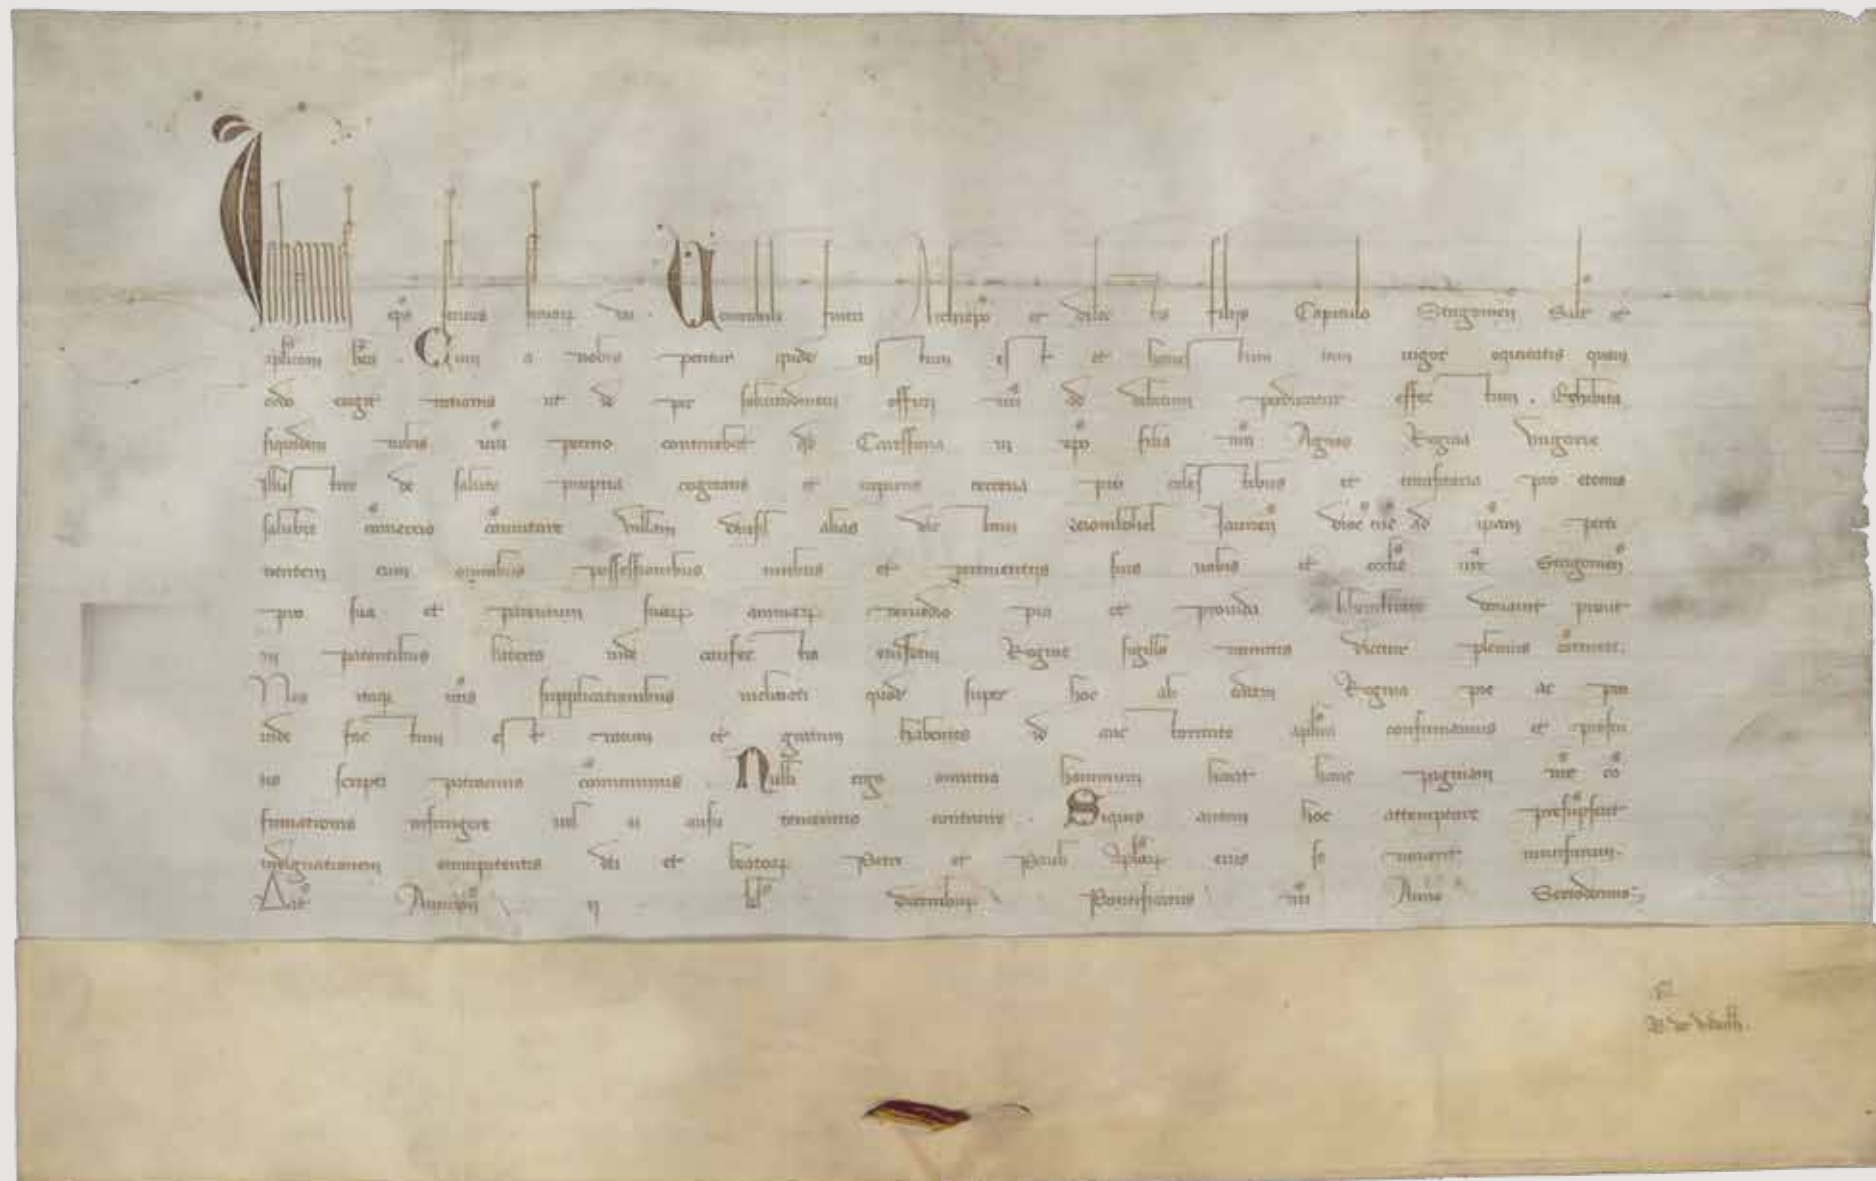 Iohannes ep̄s seruus seruoꝝ dei . Uenerabili fratri Archiep̄o et dilectis filijs Capitulo Strigonien̄ Salt̄ et
aplicam ben̄ . Cum a nobis petitur quod iustum est et honestum tam uigor equitatis quam
ordo exigit rationis ut id per sollicitudinem officij nr̄i ad debitum perducatur effectum . Exhibita
siquidem nobis ur̄a petitio continebat qd̄ Carissima in xp̄o filia nr̄a Agnes Regina Ungarie
illustris de salute propria cogitans et cupiens terrena pro celestibus et transitoria pro eternis
salubri com̄ercio com̄utare uillam alias dictam Jaurien̄ dioc̄ ad ipsam perti
nentem cum omnibus possessionibus iuribus et pertinentijs suis uobis et eccl̄ie ur̄e Strigonien̄
pro sua et parentum suoꝝ animaꝝ remedio pia et prouida liberalitate donauit prout
in patentibus litteris inde confectis eiusdem Regine sigillo munitis dicitur plenius contineri.
Nos itaqꝫ ur̄is supplicationibus inclinati quod super hoc ab eadem Regina pie ac pro
uide factum est ratum et gratum habentes id auctoritate aplica confirmamus et presen
tis scripti patrocinio com̄unimus . Nulli ergo omnino hominum liceat hanc paginam nr̄e con
firmationis infringere uel ei ausu temerario contraire . Siquis autem hoc attemptare presumpserit
indignationem omnipotentis dei et beatoꝝ Petri et Pauli Aplōꝝ eius se nouerit incursurum.
Dat̄ Auinion̄ ij Decembr̄ Pontificatus nr̄i Anno Sextodecimo